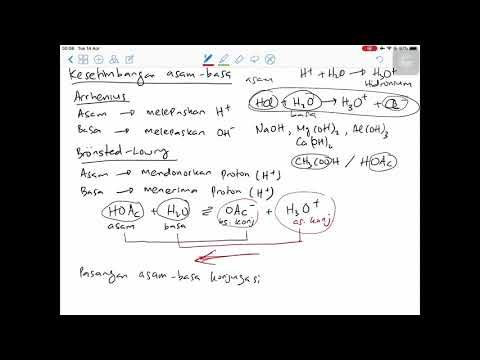 00:08 Tue 14 Apr
Kesetimbangan asam-basa
asam H⁺ + H₂O → H₃O⁺
Hidronium
Arrhenius
HCl + H₂O → H₃O⁺ + Cl⁻
basa
Asam → melepaskan H⁺
Basa → melepaskan OH⁻
NaOH, Mg(OH)₂, Al(OH)₃
Ca(OH)₂
Brönsted-Lowry
CH₃COOH / HOAc
Asam → mendonorkan Proton (H⁺)
Basa → menerima Proton (H⁺)
HOAc + H₂O ⇌ OAc⁻ + H₃O⁺
asam basa bs. konj as. konj
Pasangan asam-basa konjugasi